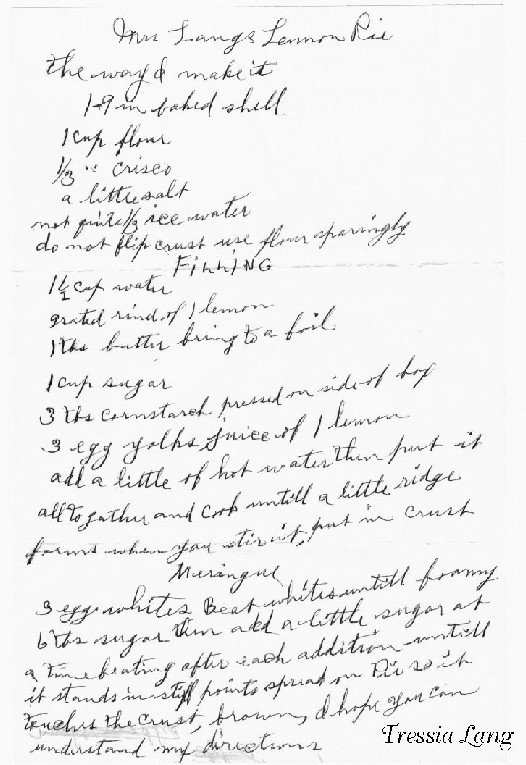 Mrs Langs Lemon Pie
the way I make it
1-9 in baked shell
1 cup flour
1/3 " crisco
a little salt
not quite 1/3 ice water
do not flip crust use flour sparingly
FiLLiNG
1 1/2 cup water
grated rind of 1 lemon
1 tbs butter bring to a boil
1 cup sugar
3 tbs cornstarch pressed on side of box
3 egg yolks juice of 1 lemon
add a little of hot water then put it
all to gather and cook untill a little ridge
forms when you stir it, put in crust
Meringue
3 egg whites Beat whites untill foamy
6 tbs sugar then add a little sugar at
a time beating after each addition untill
it stands in stiff points spread on Pie so it
touches the crust, brown, I hope you can
understand my directions
Tressia Lang